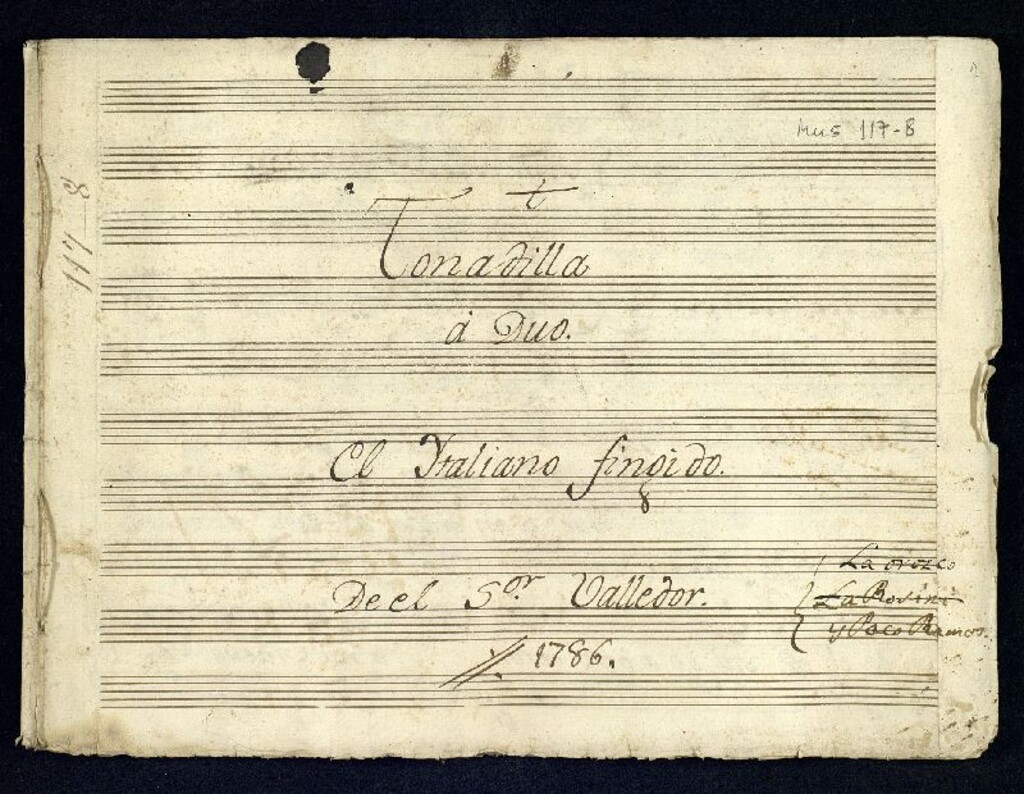 Mus 117-8
117-8
t
Tonadilla
à Duo.
El Ytaliano fingido.
De el S.or Valledor.
1786.
La orozco
La Rosini
y Paco Ramos.